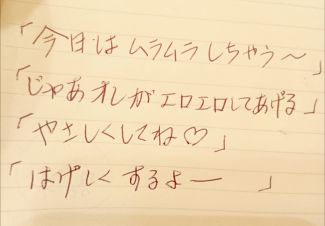 「今日はムラムラしちゃう〜」
「じゃあオレがエロエロしてあげる」
「やさしくしてね♡」
「はげしくするよー　」